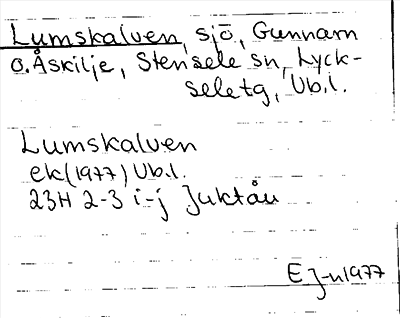 Lumskalven, sjö, Gunnarn
o. Åskilje, Stensele sn, Lyck-
seletg, Vb.l.
Lumskalven
ek (1977) Vb.l.
23H 2-3 i-j Juktån
EJ-n 1977